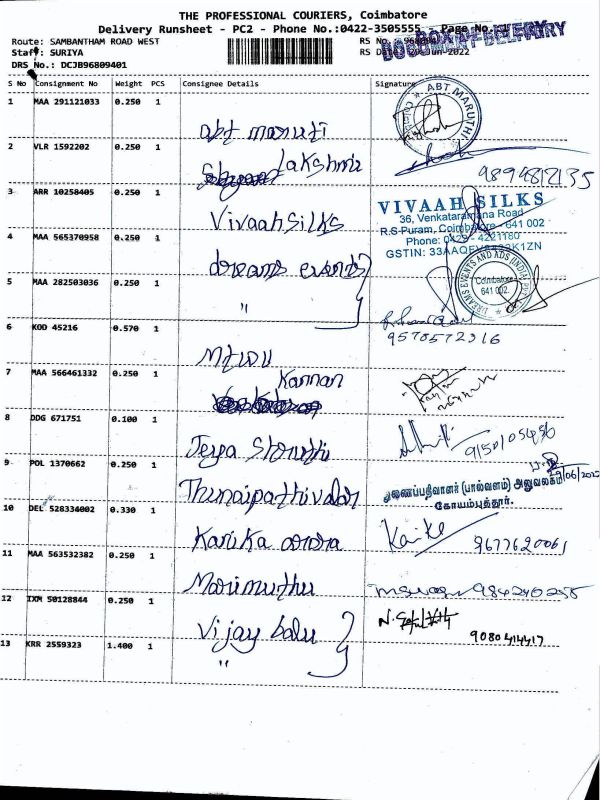 THE PROFESSIONAL COURIERS, Coimbatore
Delivery Runsheet - PC2 - Phone No.:0422-3505555 Page No.
DOCUMENT DELIVERY
Route: SAMBANTHAM ROAD WEST
RS No.
Staff: SURIYA
RS Date: 20-Jun-2022
DRS No.: DCJB96809401
S No Consignment No Weight PCS Consignee Details Signature
1 MAA 291121033 0.250 1 abt maruti
ABT MARUTHI
2 VLR 1592202 0.250 1 Lakshmi 9894812135
3 ARR 10258405 0.250 1 Vivaah silks
VIVAAH SILKS
36, Venkataramana Road
R.S Puram, Coimbatore - 641 002
Phone: 0422 - 4221180
4 MAA 565370958 0.250 1 dreams events
DREAMS EVENTS AND ADS (INDIA)
Coimbatore
641 002.
5 MAA 282503036 0.250 1 "
9578572316
6 KOD 45216 0.570 1
7 MAA 566461332 0.250 1 Kannan
8 DDG 671751 0.100 1 Jeya 9150105456
9 POL 1370662 0.250 1 Thunaipathivalar
துணைப்பதிவாளர் (பால்வளம்) அலுவலகம்
கோயம்புத்தூர்.
10 DEL 528334002 0.330 1 Karika 9677620061
11 MAA 563532382 0.250 1 Marimuthu 984240258
12 IXM 50128844 0.250 1 Vijay balu
9080414417
13 KRR 2559323 1.400 1 "